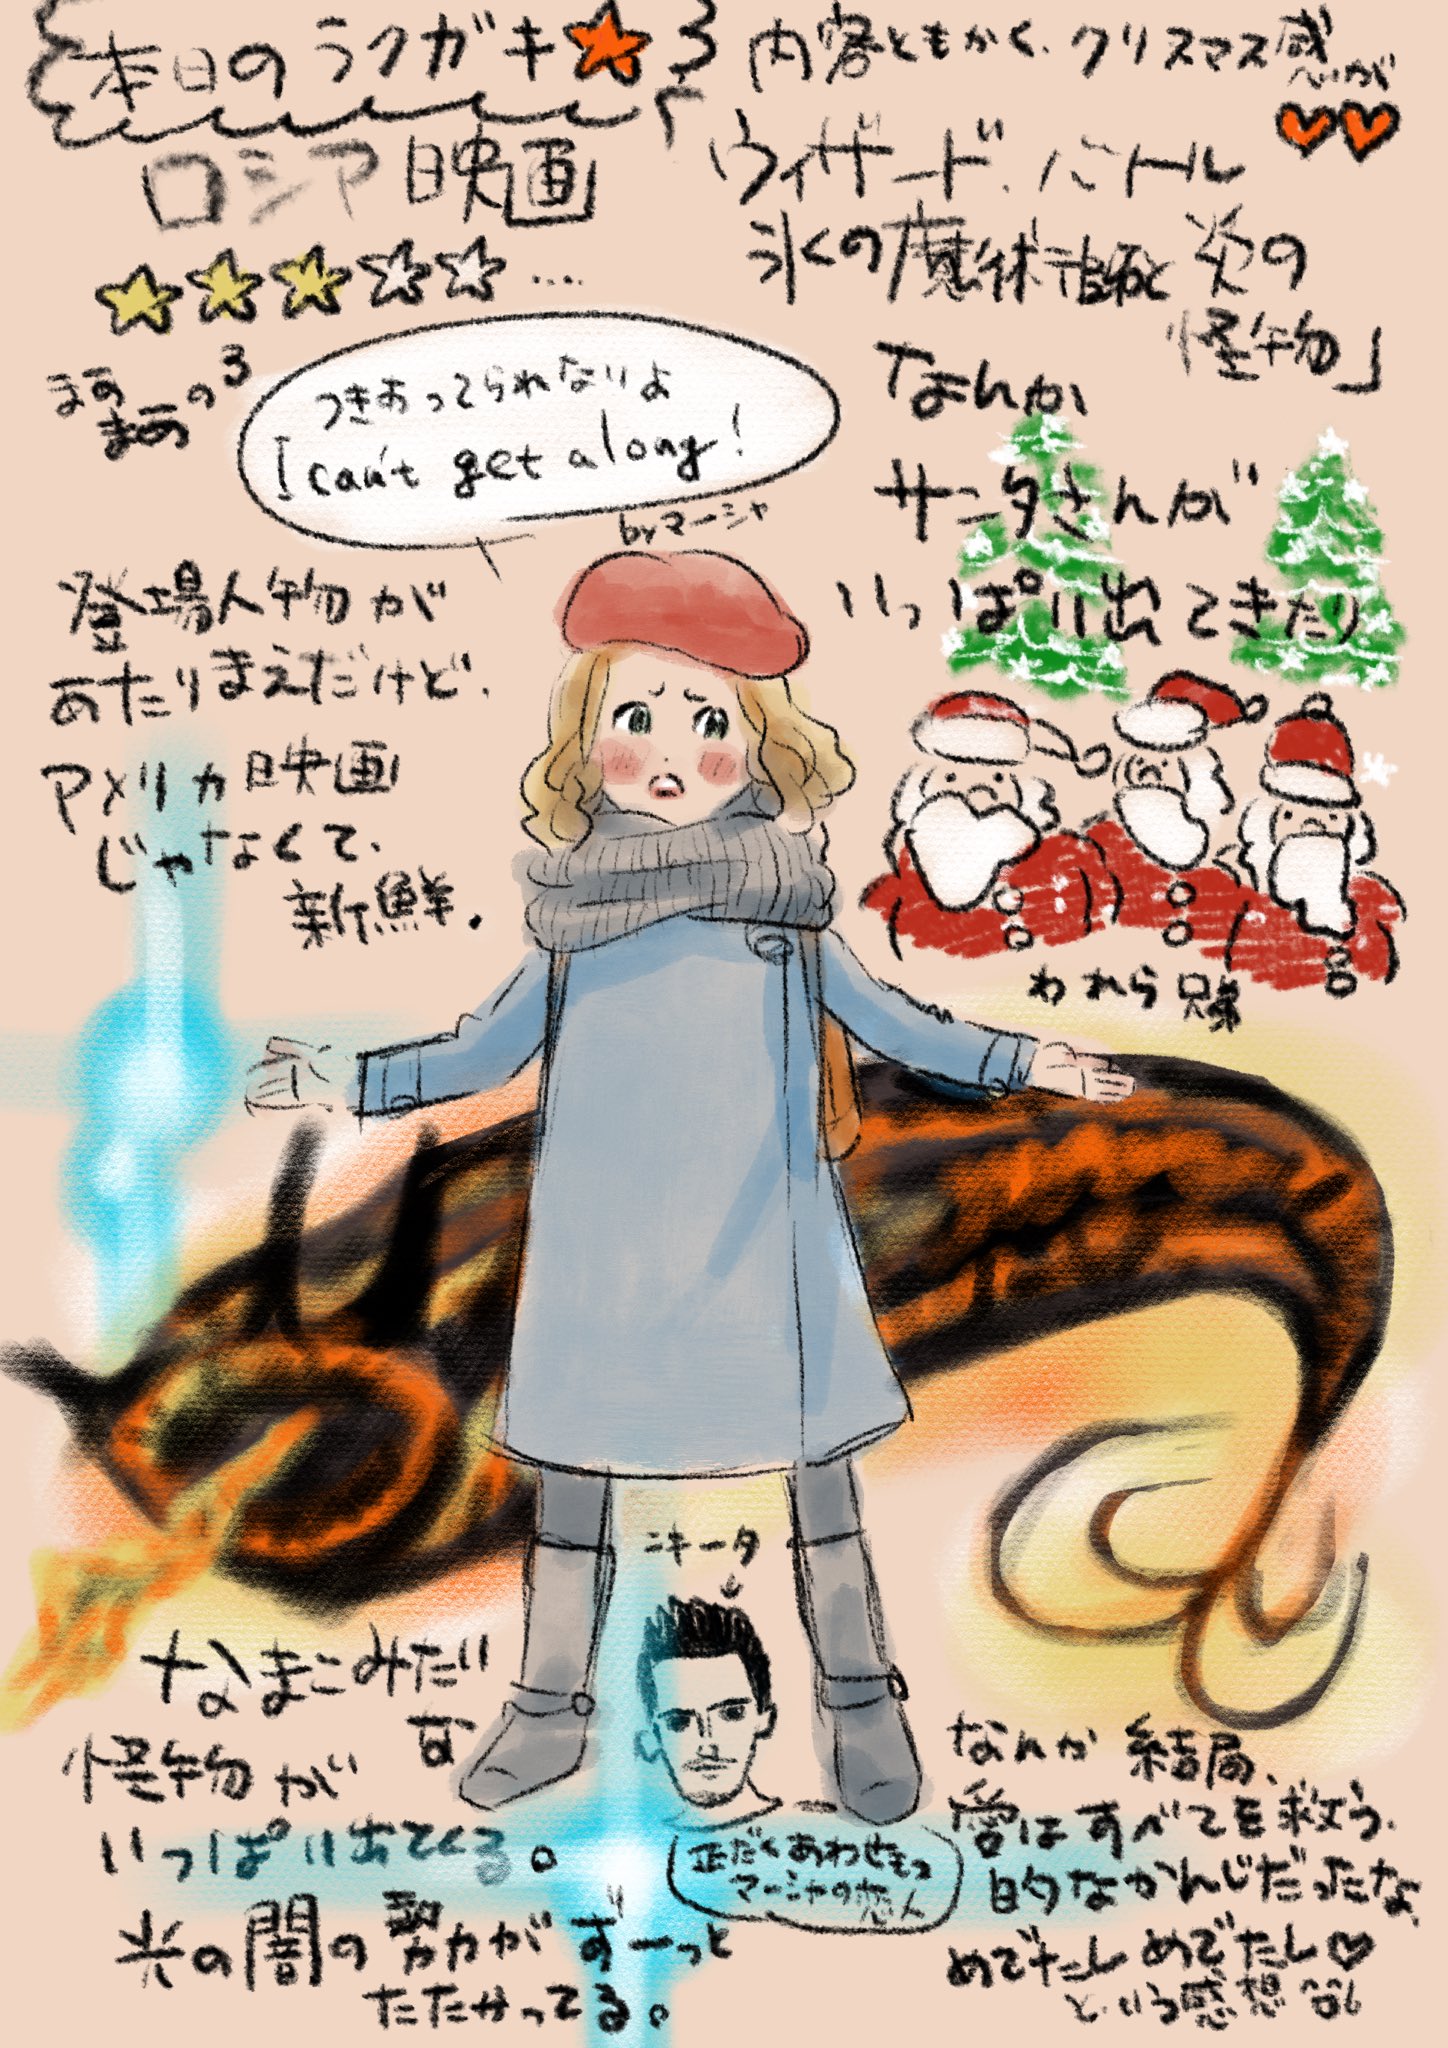 本日のラクガキ
ロシア映画
まあまあの3
内容ともかく、クリスマス感がいい
「ウィザード・バトル
氷の魔術師と炎の
怪物」
つきあってられないよ
I can't get along!
byマーシャ
なんか
サンタさんが
いっぱい出てきたり
われら兄弟
登場人物が
あたりまえだけど、
アメリカ映画
じゃなくて、
新鮮.
ニキータ
なまこみたい
な
怪物が
いっぱい出てくる。
光の闇の勢力がずーっと
たたかってる。
マーシャの恋人
なんか結局、
愛はすべてを救う.
的なかんじだったな、
めでたしめでたし♡
という感想